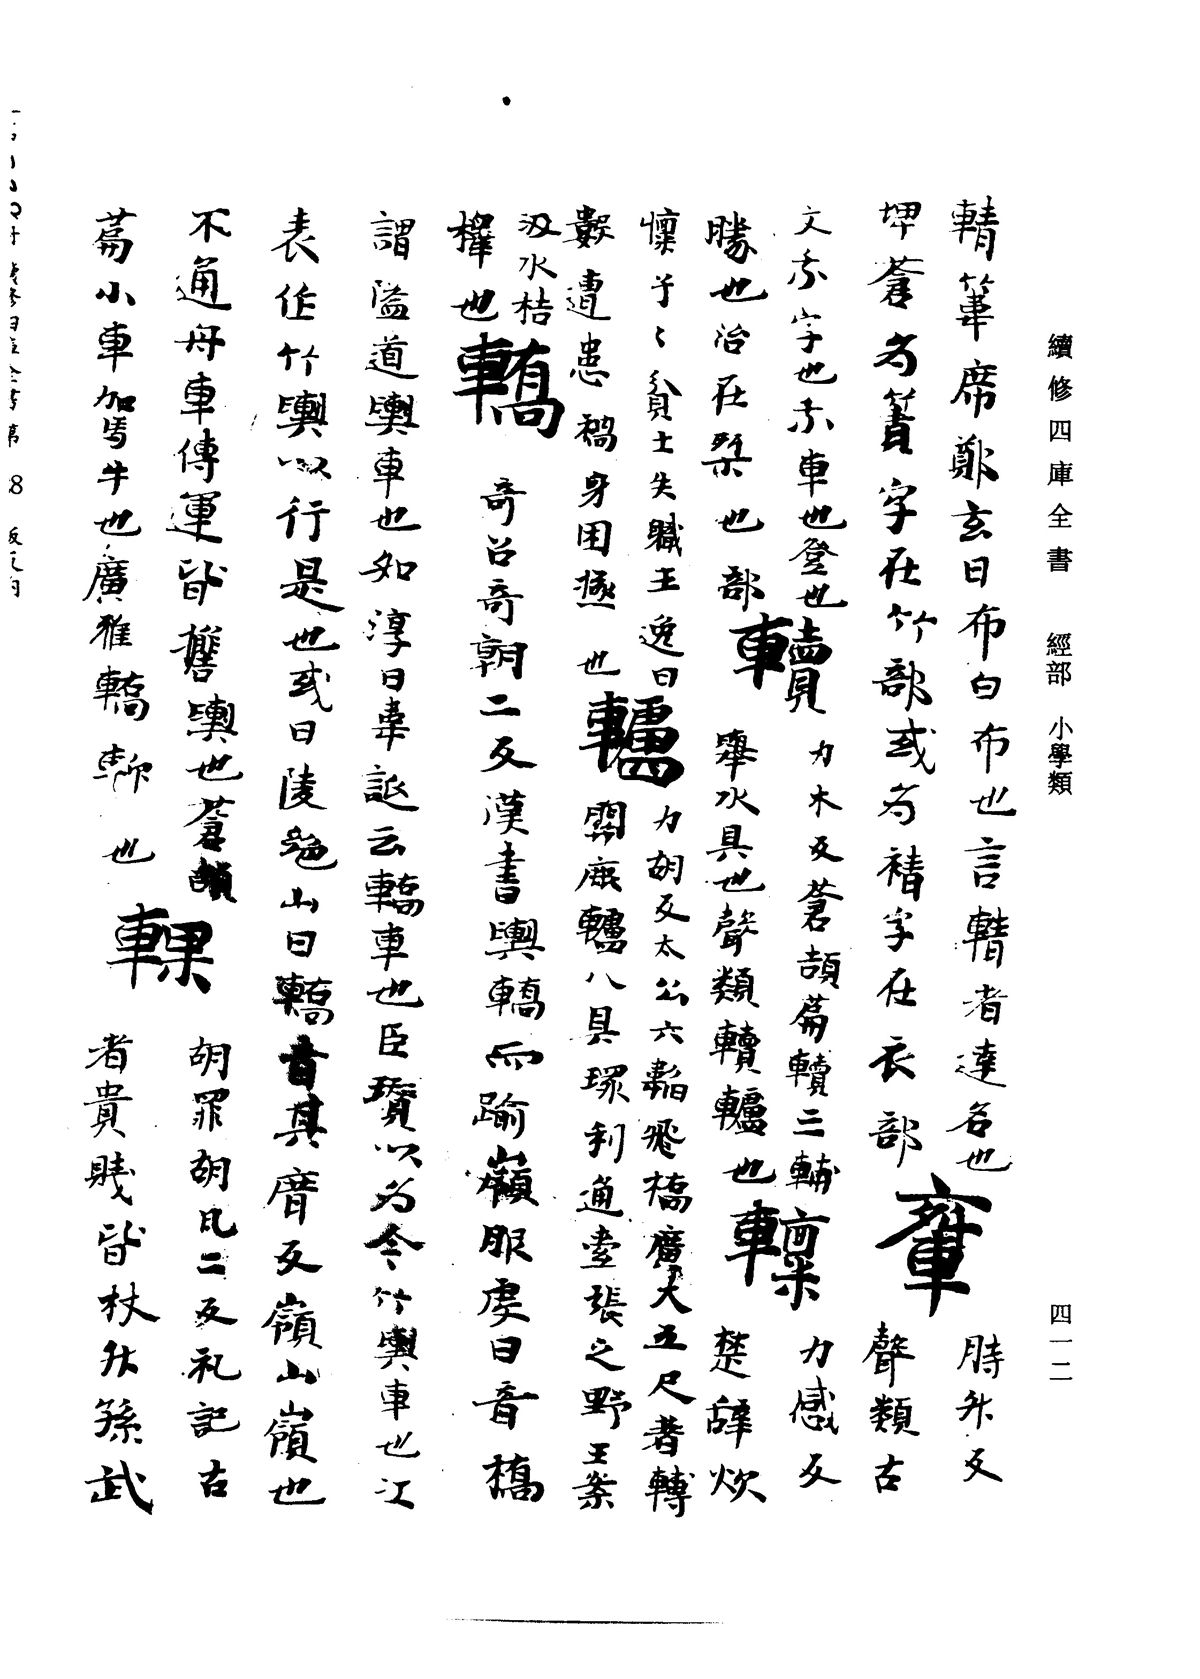 續修四庫全書 經部 小學類
四一二
輤葦席鄭玄曰布白布也言輤者達名也
埤蒼為簀字在竹部或為褚字在衣部 𨍴 時升反聲類古
文丞字也丞車也登也勝也治在桀也部
轒 力木反蒼頡篇轒三輔舉水具也聲類轒轤也 𨎭 力感反楚辭欿
懍予〻貧士失職王逸曰數遭患禍身困極也
轤 力胡反太公六韜飛橋廣大五尺者轉關鹿轤八具環利通索張之野王案
汲水桔橰也
轎 奇召奇朝二反漢書輿轎而踰嶺服虔曰音橋
謂隘道輿車也如淳曰牽誃云轎車也臣瓚以為今竹輿車也江
表作竹輿以行是也或曰陵絕山曰轎音其廇反嶺山嶺也
輠 胡罪胡瓦二反礼記古者貴賤皆杖升孫武
不通舟車傳運皆擔輿也蒼頡
篇小車加馬牛也廣雅轎𨋢也